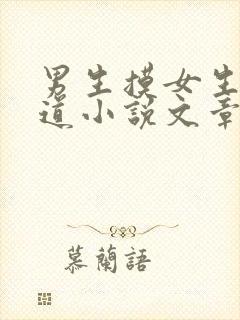 男生摸女生
道小説文章
慕蘭語